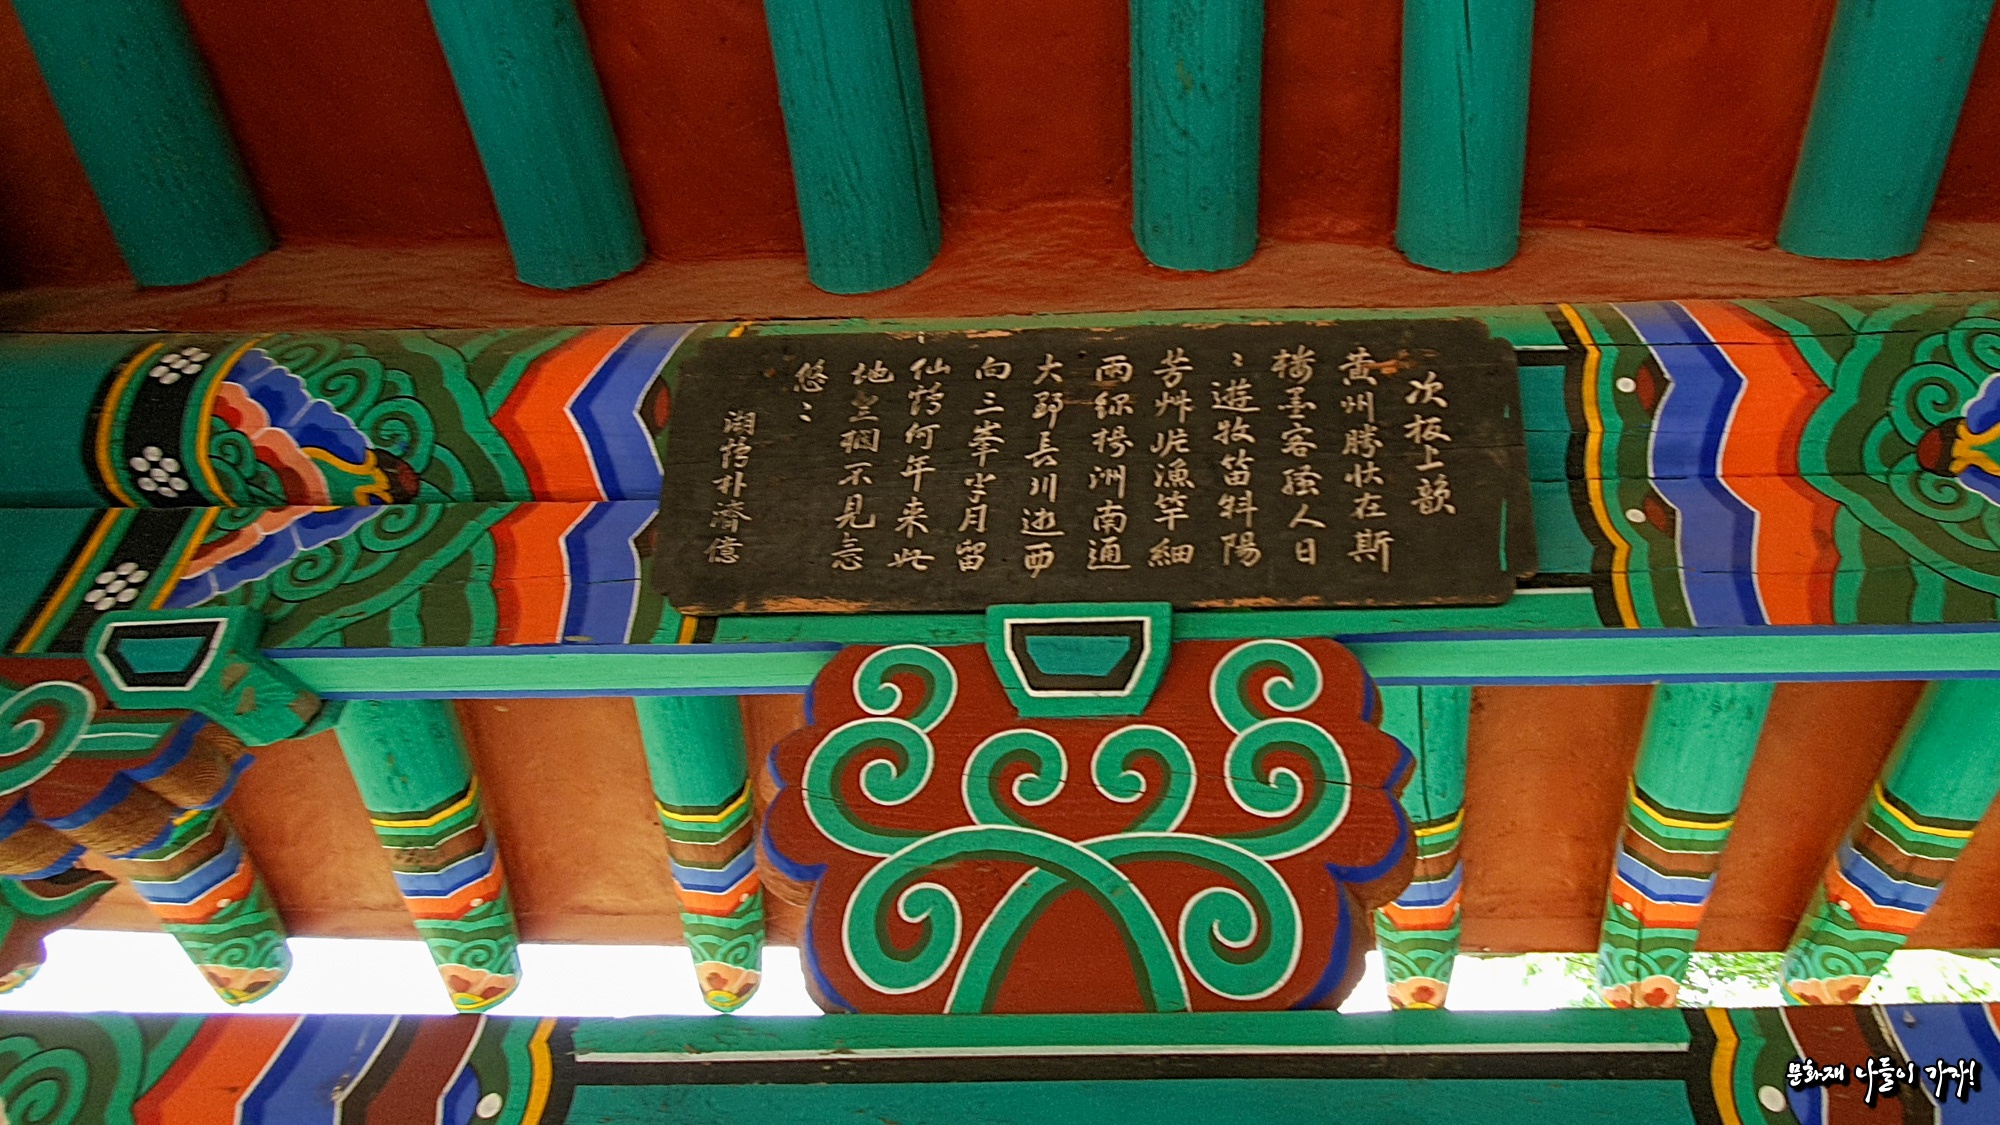 次板上韻
黄州勝状在斯
樓墨客騷人日
〻遊牧笛斜陽
芳艸岸漁竿細
雨綠楊洲南通
大野長川逈西
向三峯半月留
仙鶴何年来此
地不見
悠〻
湖鶴朴濟億
문화재 나들이 가자!